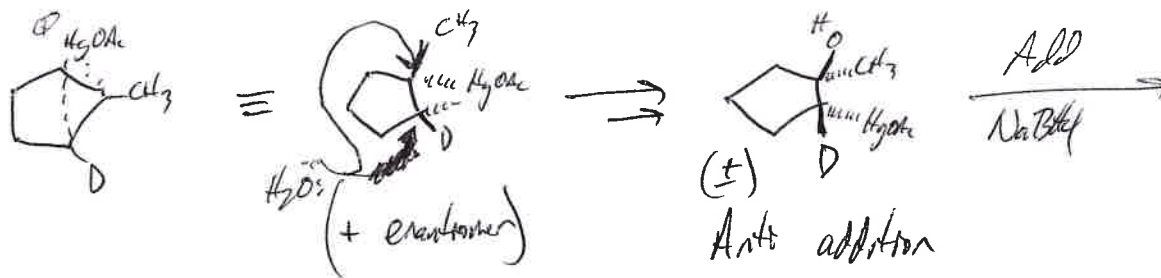 ⊕
HgOAc
CH3
D
≡
CH3
HgOAc
D
H2O:
(+ enantiomer)
H
O
CH3
HgOAc
D
(±)
Anti addition
Add
NaBH4